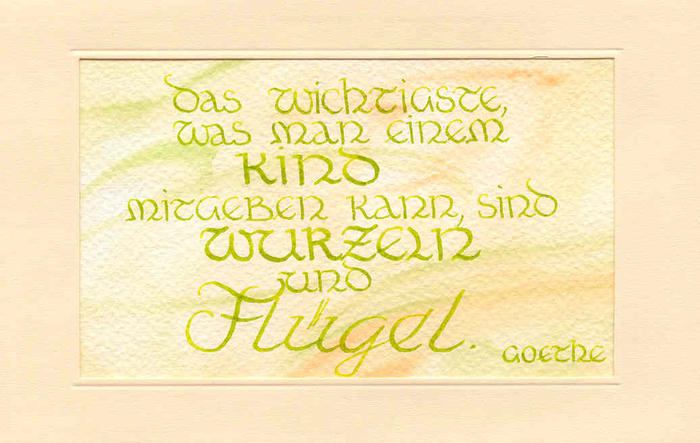 Das Wichtigste,
was man einem
KIND
mitgeben kann, sind
WURZELN
und
Flügel.
Goethe